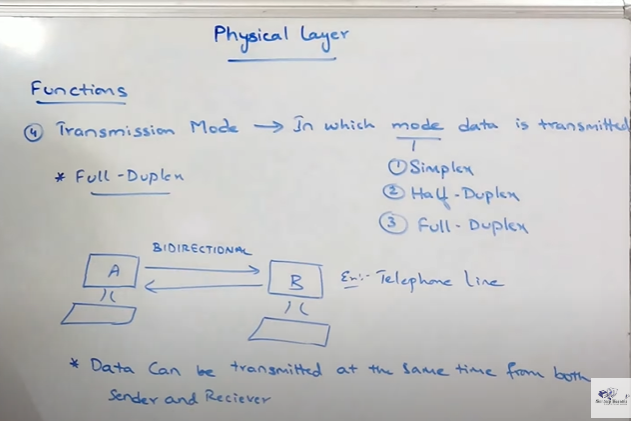 Physical Layer
Functions
④ Transmission Mode → In which mode data is transmitted
① Simplex
* Full-Duplex
② Half-Duplex
③ Full-Duplex
BIDIRECTIONAL
A
B
Ex:- Telephone line
* Data Can be transmitted at the same time from both
Sender and Reciever